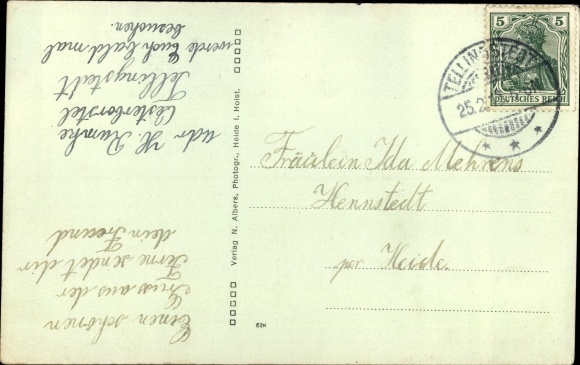 Einen schönen
Gruss aus der
Ferne sendet dir
dein Freund
adr. H. Rumke
Oesterborstel
Tellingstedt
werde Euch bald mal
besuchen.
Verlag N. Albers, Photogr., Heide i. Holst.
63N
5 5
DEUTSCHES REICH
TELLINGSTEDT
25.2
Fräulein Ida Mehrens
Hennstedt
per Heide.